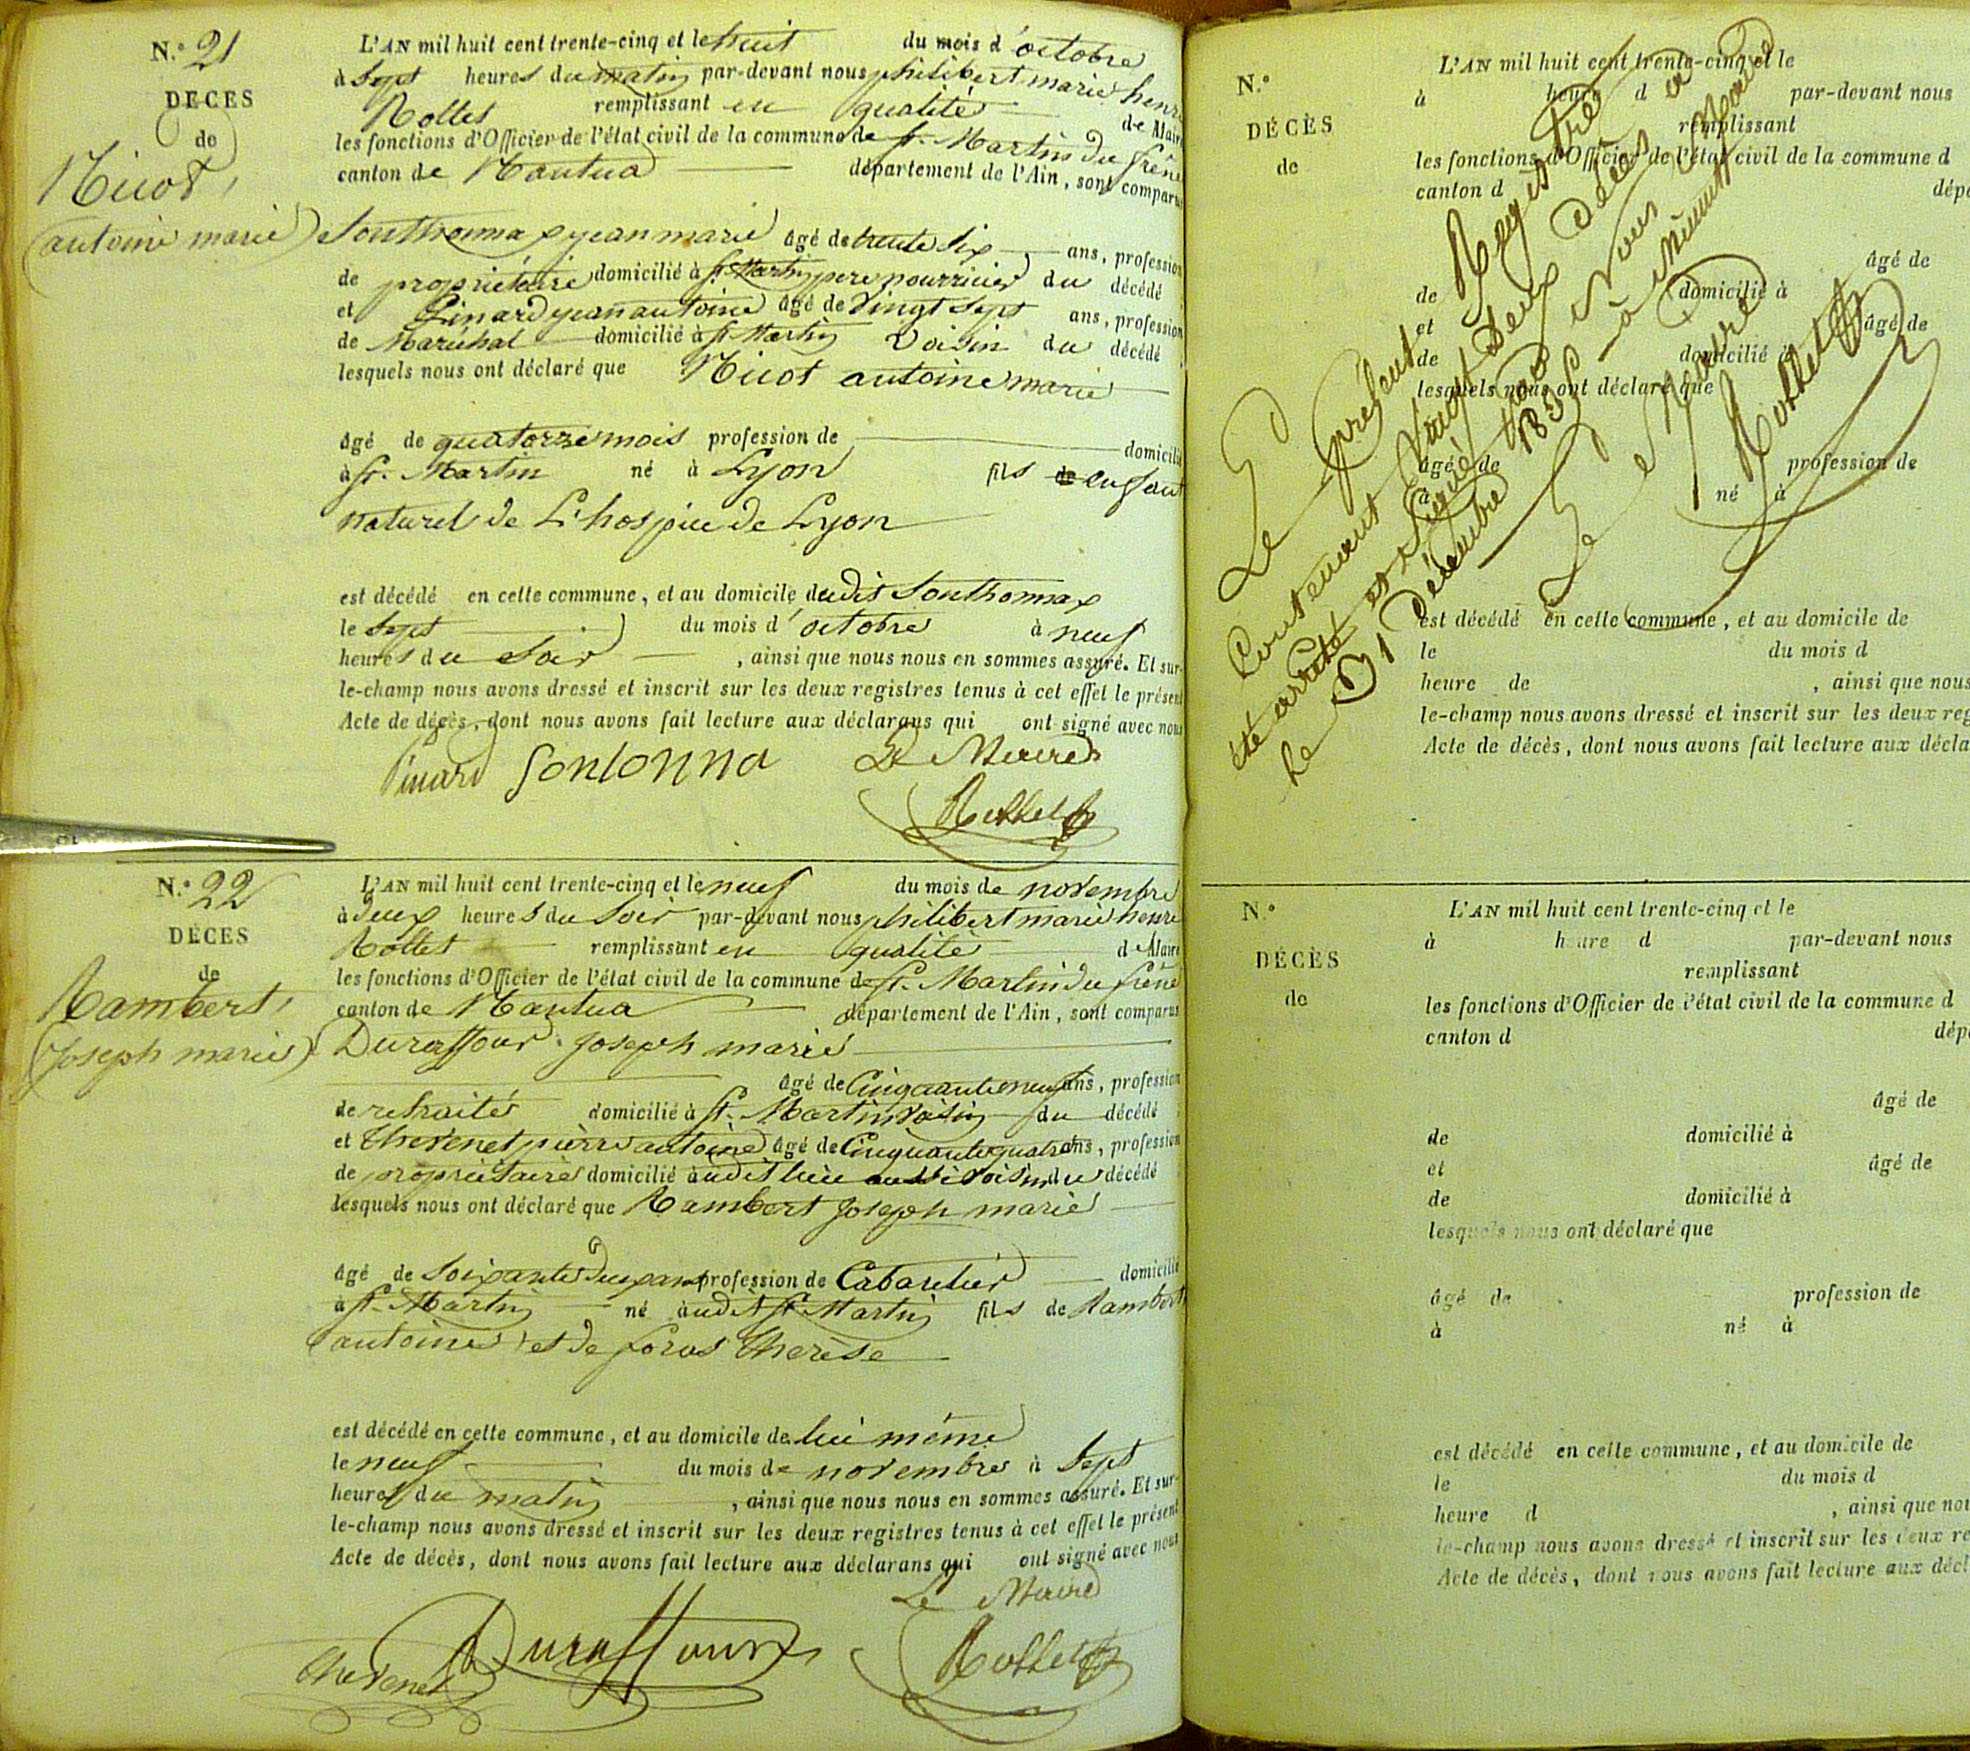 N.° 21
DÉCES
de
Nicod,
(antoine marie)
L'AN mil huit cent trente-cinq et le huit du mois d'octobre
à Sept heures du matin par-devant nous philibert marie henri
Rollet remplissant en qualité de Maire
les fonctions d'Officier de l'état civil de la commune de St. Martin du frêne
canton de Nantua département de l'Ain, sont comparus
Southonnax jean marie âgé de trente Six ans, profession
de propriétaire domicilié à St. Martin père nourricier du décédé
et Pinard jean antoine âgé de Vingt Sept ans, profession
de Maréchal domicilié à St Martin Voisin du décédé
lesquels nous ont déclaré que Nicot antoine marie
âgé de quatorze mois profession de domicilié
à St. Martin né à Lyon fils de enfant
naturel de L'hospice de Lyon
est décédé en cette commune, et au domicile dudit Southonnax
le Sept du mois d'octobre à neuf
heures du Soir, ainsi que nous nous en sommes assuré. Et sur-
le-champ nous avons dressé et inscrit sur les deux registres tenus à cet effet le présent
Acte de décès, dont nous avons fait lecture aux déclarans qui ont signé avec nous
Pinard Sontonna Le Maire
Rollet
N.° 22
DÉCES
de
Rambert,
(Joseph marie)
L'AN mil huit cent trente-cinq et le neuf du mois de novembre
à Deux heures du Soir par-devant nous philibert marie henri
Rollet remplissant en qualité de Maire
les fonctions d'Officier de l'état civil de la commune de St. Martin du frêne
canton de Nantua département de l'Ain, sont comparus
Duraffour Joseph marie
âgé de Cinquante neuf ans, profession
de retraité domicilié à St. Martin voisin du décédé
et thevenet pierre antoine âgé de Cinquante quatre ans, profession
de propriétaire domicilié audit lieu aussi voisin du décédé
lesquels nous ont déclaré que Rambert Joseph marie
âgé de Soixante Deux ans profession de Cabaretier domicilié
à St. Martin né audit St Martin fils de Rambert
antoine et de foras thérèse
est décédé en cette commune, et au domicile de lui même
le neuf du mois de novembre à Sept
heures du matin, ainsi que nous nous en sommes assuré. Et sur-
le-champ nous avons dressé et inscrit sur les deux registres tenus à cet effet le présent
Acte de décès, dont nous avons fait lecture aux déclarans qui ont signé avec nous
Le Maire
thevenet Duraffour Rollet
N.°
DÉCÈS
de
L'AN mil huit cent trente-cinq et le
à heure d par-devant nous
remplissant
les fonctions d'Officier de l'état civil de la commune d
canton d dépa
âgé de
de domicilié à
et âgé de
de domicilié à
lesquels nous ont déclaré que
âgé de profession de
à né à
est décédé en cette commune, et au domicile de
le du mois d
heure de , ainsi que nous
le-champ nous avons dressé et inscrit sur les deux reg
Acte de décès, dont nous avons fait lecture aux décla
Le présent Registre
Contenant Vingt Deux Décès a
été arrêté et Signé par Nous Maire
Le 31 Décembre 1835 à Minuit
Le Maire
Rollet
N.°
DÉCÈS
de
L'AN mil huit cent trente-cinq et le
à heure d par-devant nous
remplissant
les fonctions d'Officier de l'état civil de la commune d
canton d dépa
âgé de
de domicilié à
et âgé de
de domicilié à
lesquels nous ont déclaré que
âgé de profession de
à né à
est décédé en cette commune, et au domicile de
le du mois d
heure d , ainsi que nou
le-champ nous avons dressé et inscrit sur les deux re
Acte de décès, dont nous avons fait lecture aux décl